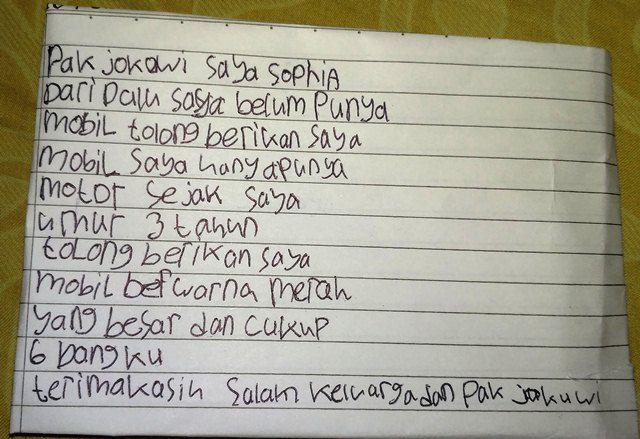 Pak jokowi saya sophia
Dari Dalu saya belum Punya
mobil tolong berikan saya
mobil saya hanya punya
motor sejak saya
umur 3 tahun
tolong berikan saya
mobil berwarna merah
yang besar dan cukup
6 bangku
terimakasih salam keluarga dan Pak jokuwi